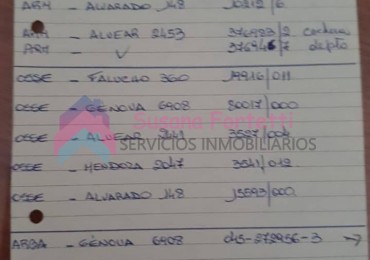 ARM - ALVARADO 148 10212/6
ARM - ALVEAR 2453 376923/2 cochera
ARM ✓ 376946/7 depto
OSSE - FALUCHO 360 19916/011
OSSE - GÉNOVA 6908 80017/000
OSSE - ALVEAR 2441 3527/004
OSSE - MENDOZA 2047 3541/012
OSSE - ALVARADO 148 15593/000
ARBA - GÉNOVA 6908 045-372956-3 →
Susana Portetti
SERVICIOS INMOBILIARIOS